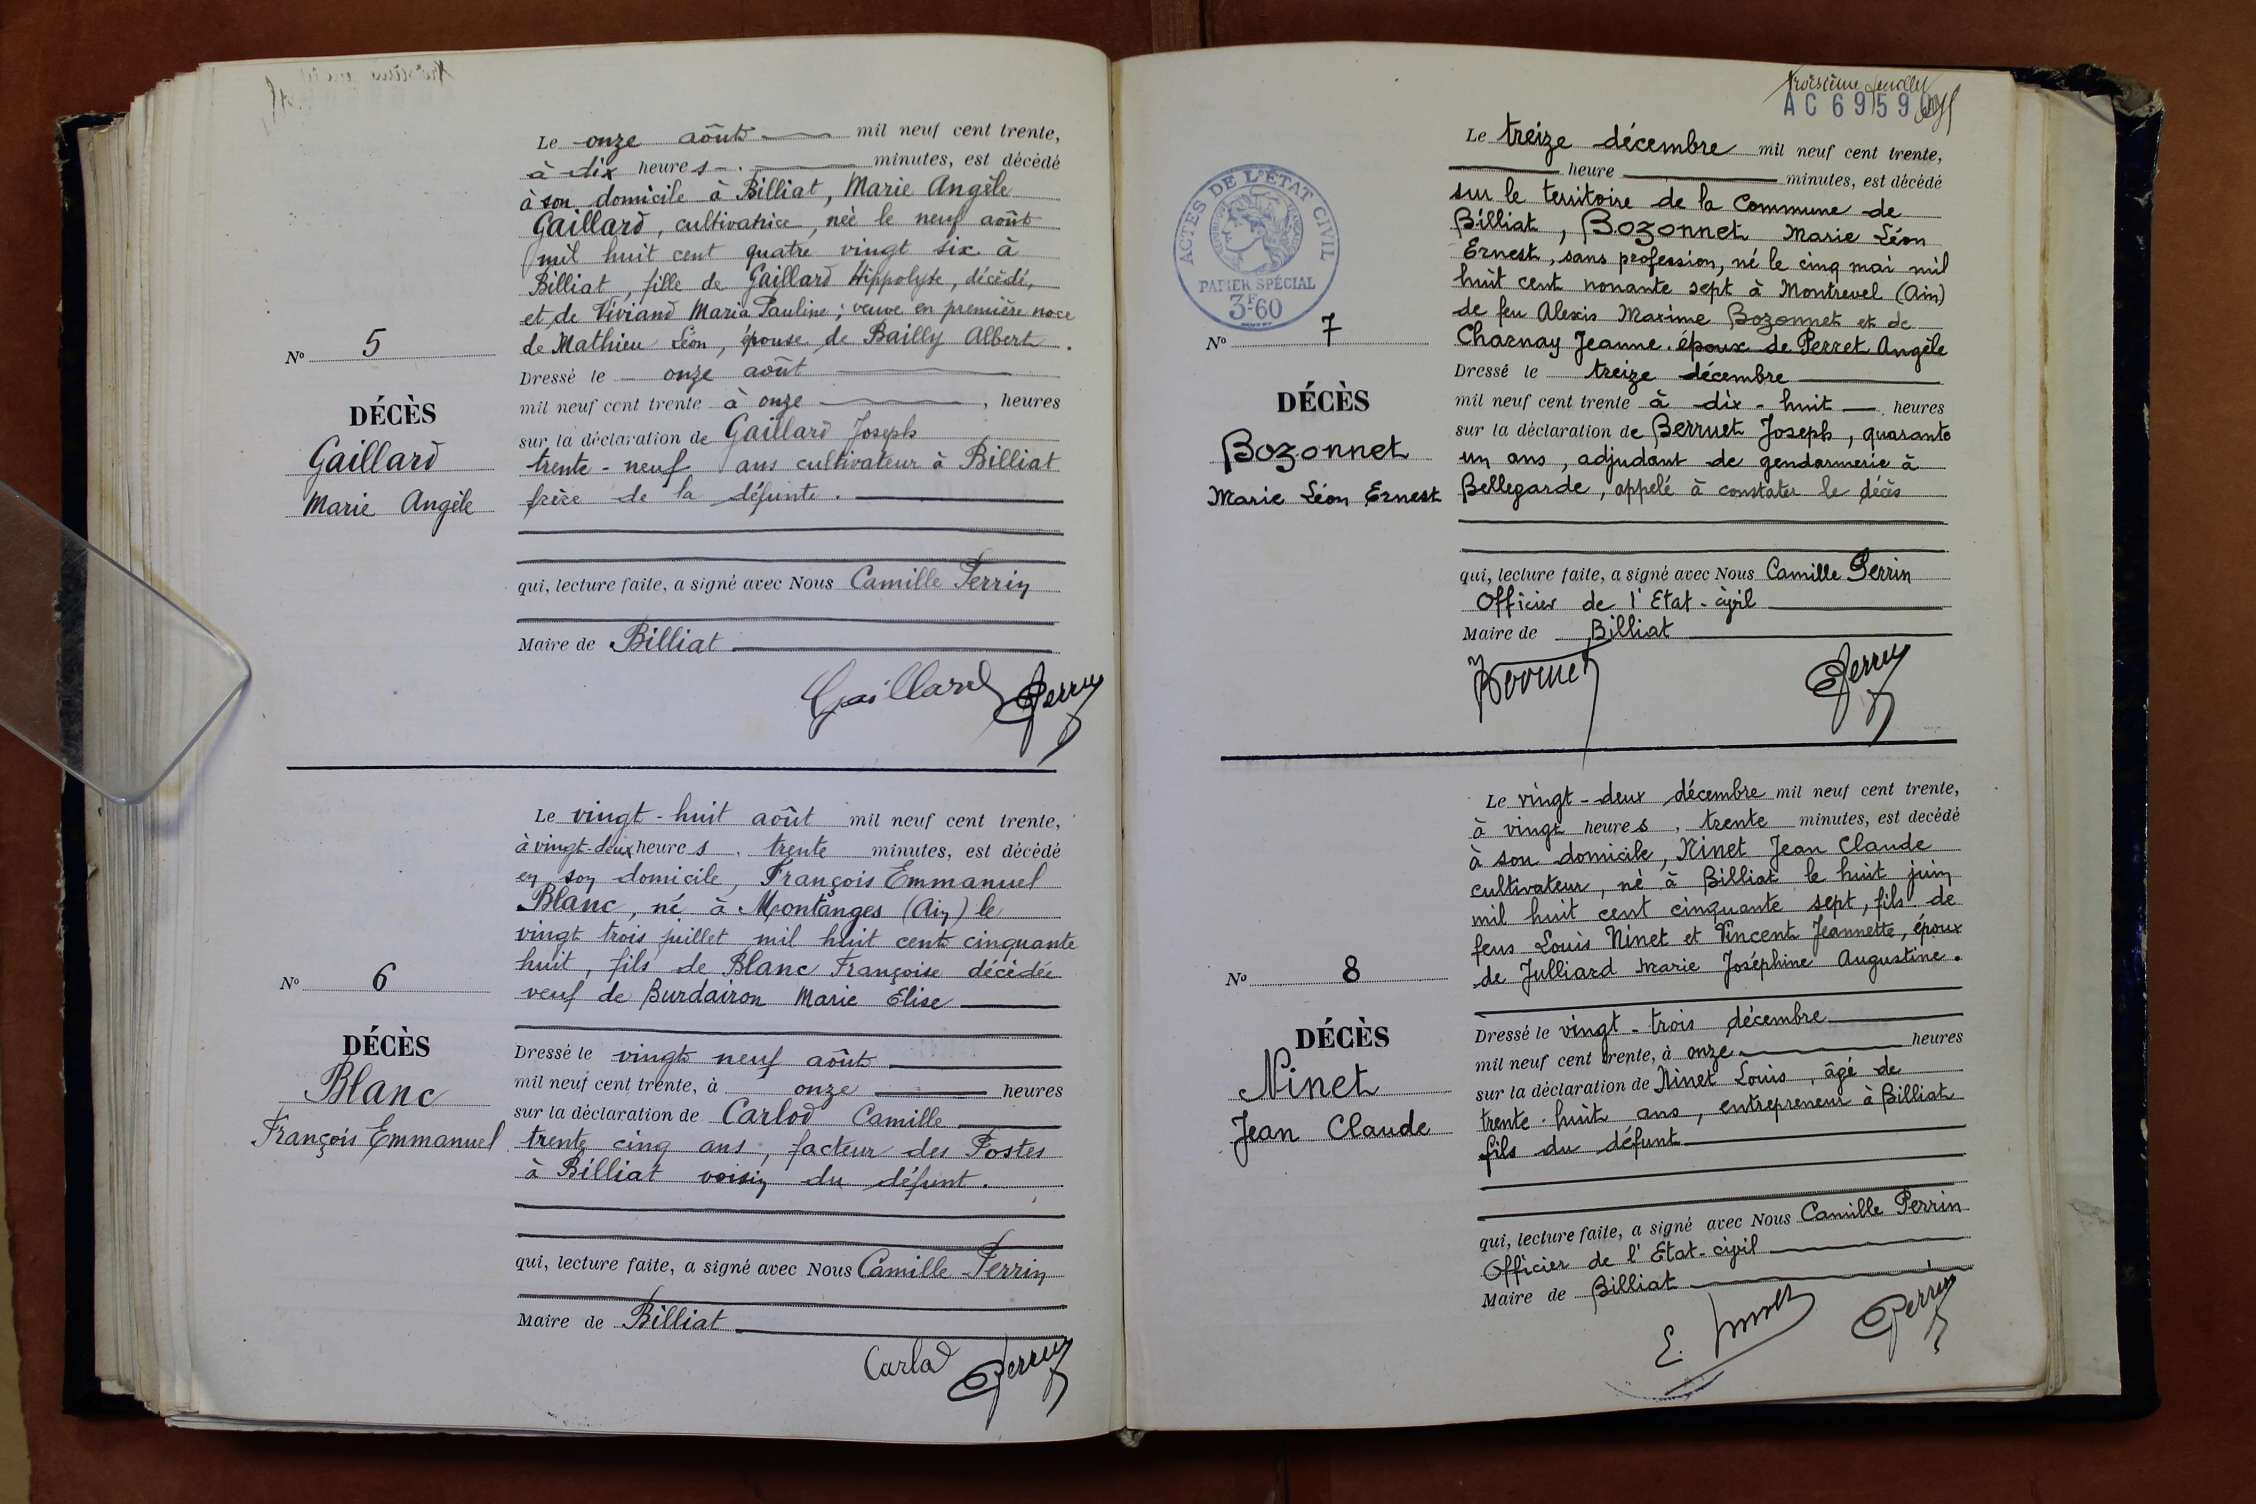 Le onze août mil neuf cent trente,
à dix heures minutes, est décédé
à son domicile à Billiat, Marie Angèle
Gaillard, cultivatrice, née le neuf août
mil huit cent quatre vingt six à
Billiat, fille de Gaillard Hippolyte, décédé,
et de Viviand Maria Pauline ; veuve en première noce
de Mathieu Léon, épouse de Bailly Albert.
Nº 5
DÉCÈS
Gaillard
Marie Angèle
Dressé le onze août
mil neuf cent trente à onze, heures
sur la déclaration de Gaillard Joseph
trente-neuf ans cultivateur à Billiat
frère de la défunte.
qui, lecture faite, a signé avec Nous Camille Perrin
Maire de Billiat
Gaillard Perrin
Le vingt-huit août mil neuf cent trente,
à vingt-deux heures, trente minutes, est décédé
en son domicile, François Emmanuel
Blanc, né à Montanges (Ain) le
vingt trois juillet mil huit cent cinquante
huit, fils de Blanc Françoise décédée
veuf de Burdairon Marie Elise
Nº 6
DÉCÈS
Blanc
François Emmanuel
Dressé le vingt neuf août
mil neuf cent trente, à onze heures
sur la déclaration de Carlod Camille
trente cinq ans, facteur des Postes
à Billiat voisin du défunt.
qui, lecture faite, a signé avec Nous Camille Perrin
Maire de Billiat
Carlod Perrin
Troisième feuillet
AC 69590
ACTES DE L'ÉTAT CIVIL
RÉPUBLIQUE FRANÇAISE
PAPIER SPÉCIAL
3F60
Le treize décembre mil neuf cent trente,
heure minutes, est décédé
sur le territoire de la Commune de
Billiat, Bozonnet Marie Léon
Ernest, sans profession, né le cinq mai mil
huit cent nonante sept à Montrevel (Ain)
de feu Alexis Maxime Bozonnet et de
Charnay Jeanne. époux de Perret Angèle
Nº 7
DÉCÈS
Bozonnet
Marie Léon Ernest
Dressé le treize décembre
mil neuf cent trente à dix-huit heures
sur la déclaration de Berruet Joseph, quarante
un ans, adjudant de gendarmerie à
Bellegarde, appelé à constater le décès
qui, lecture faite, a signé avec Nous Camille Perrin
Officier de l'Etat-civil
Maire de Billiat
Perrin
Le vingt-deux décembre mil neuf cent trente,
à vingt heures, trente minutes, est decédé
à son domicile, Ninet Jean Claude
cultivateur, né à Billiat le huit juin
mil huit cent cinquante sept, fils de
feus Louis Ninet et Vincent Jeannette, époux
de Julliard Marie Joséphine Augustine.
Nº 8
DÉCÈS
Ninet
Jean Claude
Dressé le vingt-trois décembre
mil neuf cent trente, à onze heures
sur la déclaration de Ninet Louis, âgé de
trente-huit ans, entrepreneur à Billiat
fils du défunt
qui, lecture faite, a signé avec Nous Camille Perrin
Officier de l'Etat-civil
Maire de Billiat
Perrin